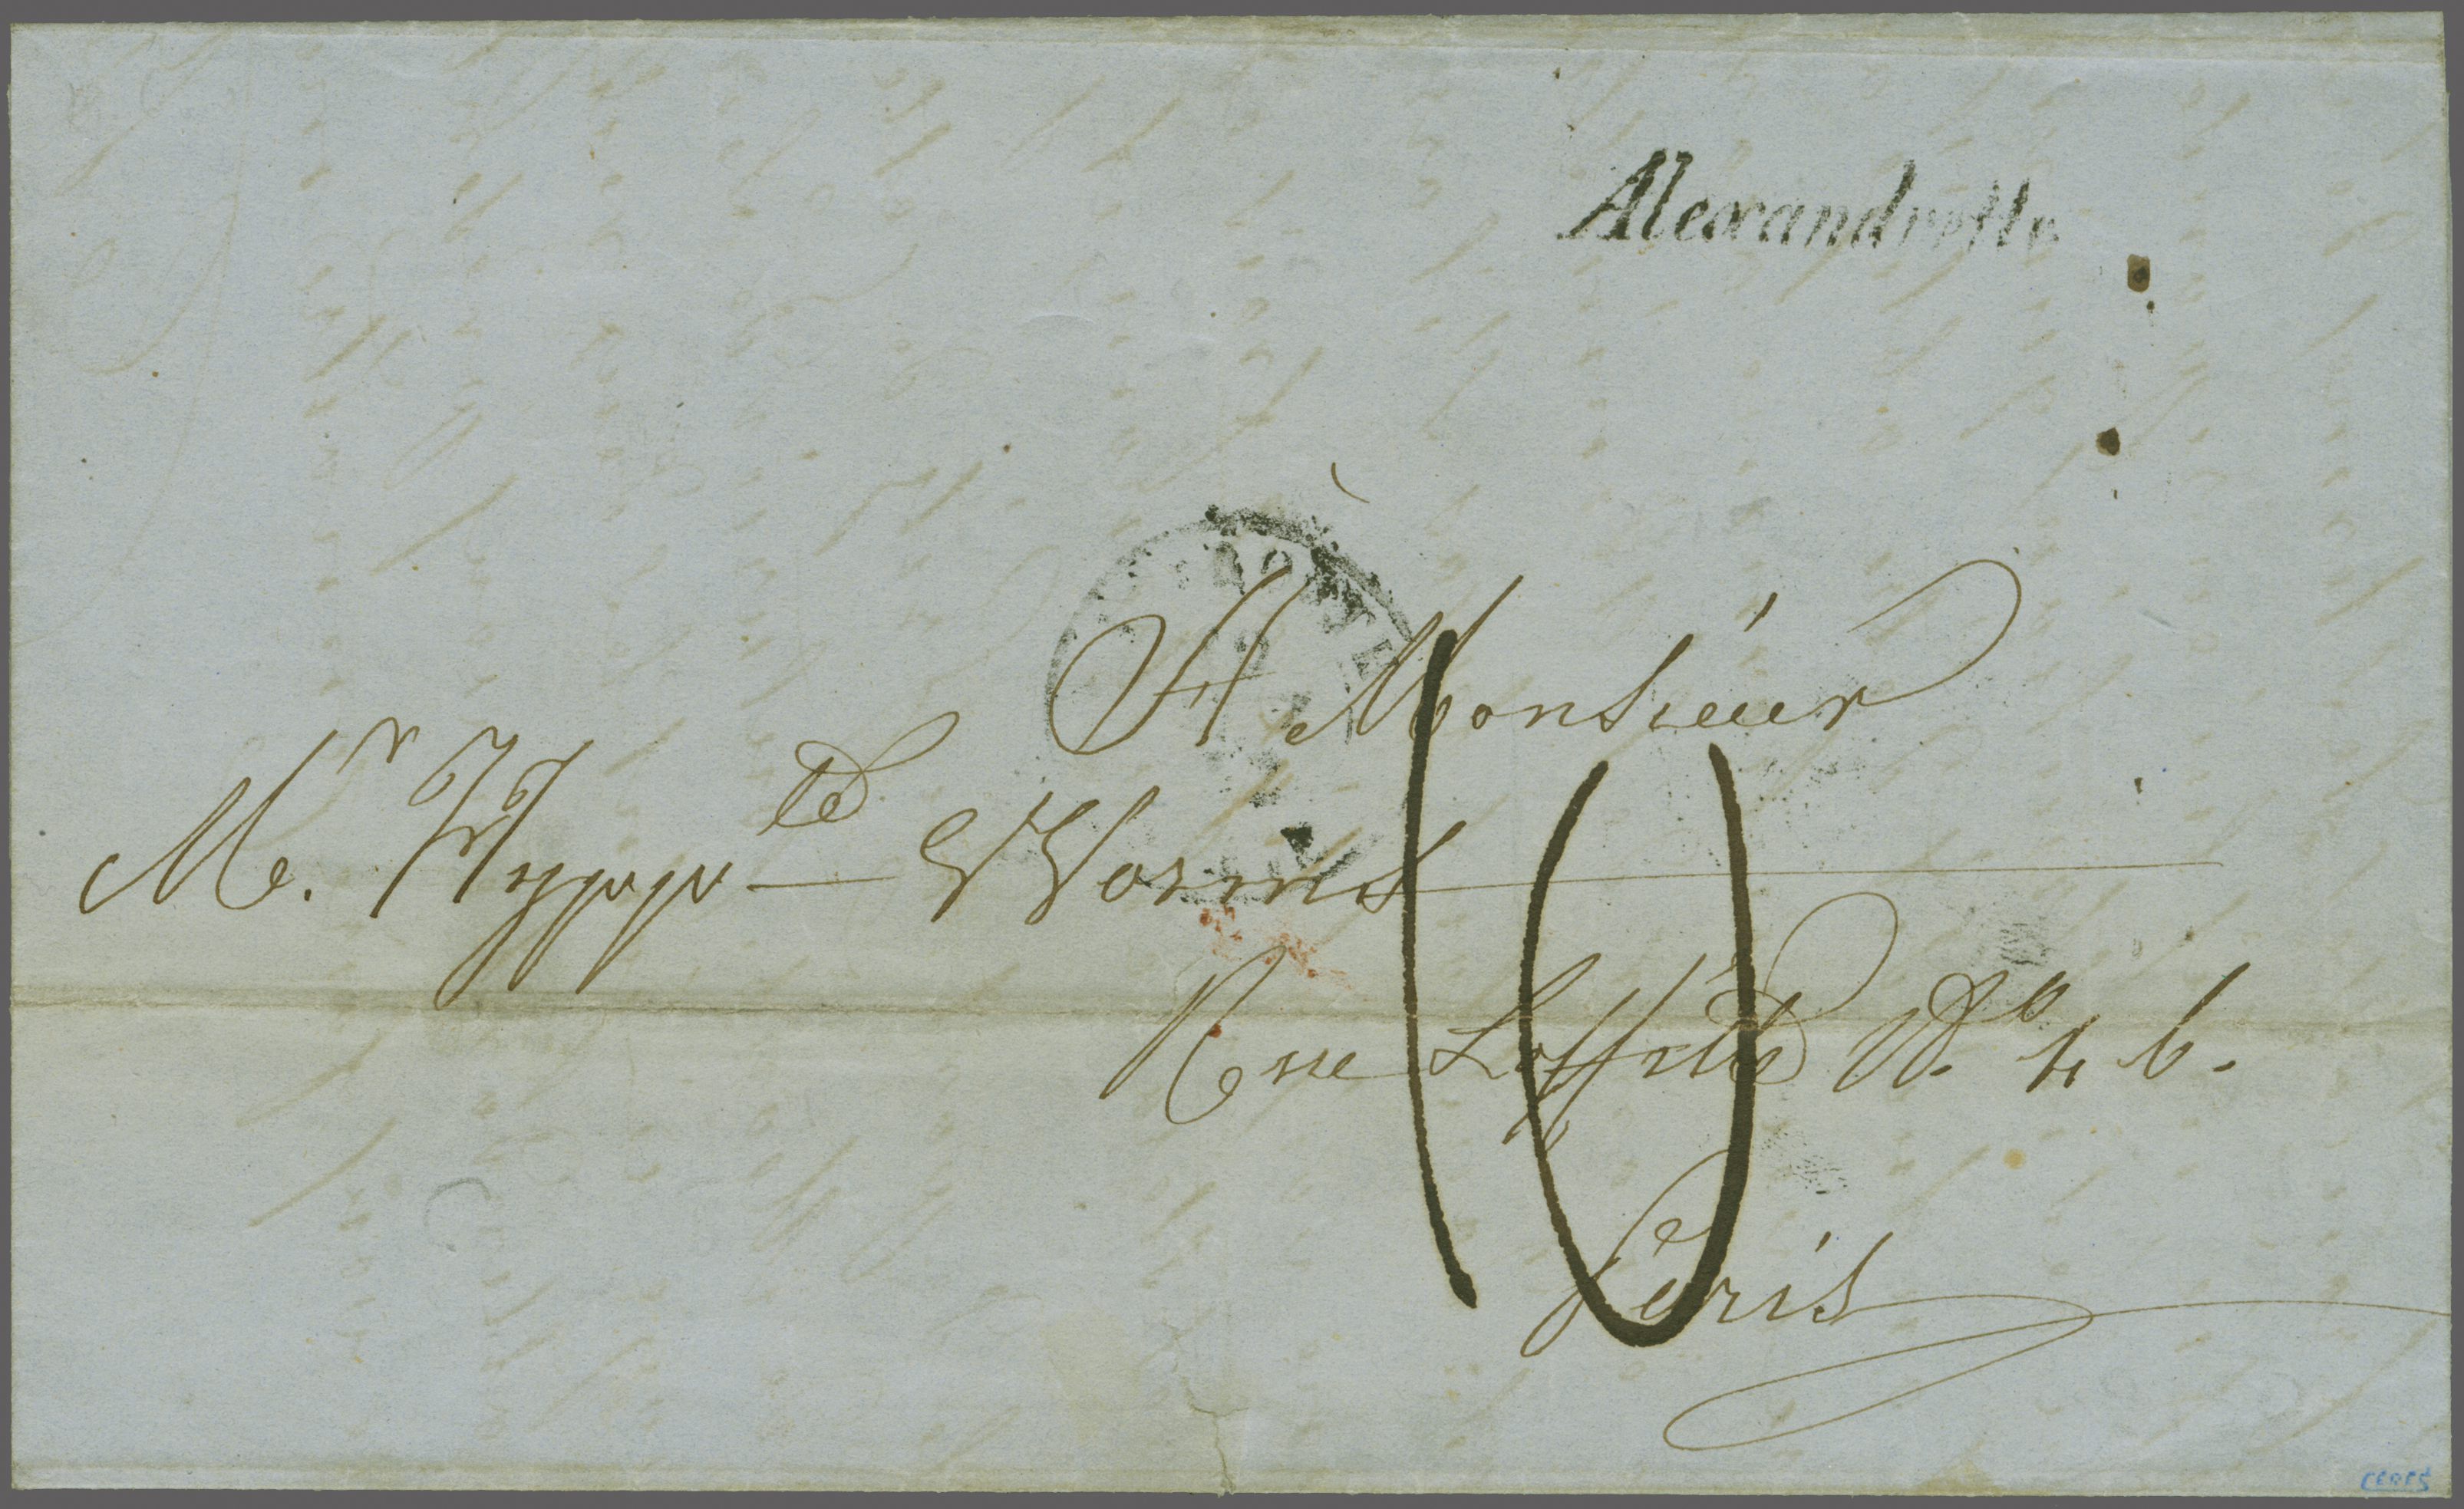 Alexandrette
A Monsieur
Mr. Hyppte Worms
Rue Laffitte No 46.
Paris
10
CERES